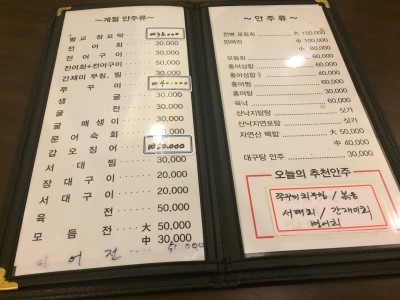 ~계절 안주류~
벌교 참꼬막
전 어 회 30,000
전 어 구 이 30,000
전어회+전어구이 50,000
간재미 무침,찜 30,000
쭈 꾸 미 ₩40,000
생 굴 30,000
굴 전 30,000
굴 매 생 이 30,000
문 어 숙 회 30,000
갑 오 징 어
서 대 찜 30,000
장 대 구 이 20,000
서 대 구 이 20,000
육 전 50,000
모 듬 전 大 50,000
中 30,000
~안 주 류~
大 150,000
민어전 中 100,000
小 80,000
홍어삼합 60,000
홍어삼합 小 40,000
홍어찜 60,000
홍어탕 30,000
육낙 60,000
산낙지탕탕 싯가
산낙지연포탕 싯가
자연산 백합 大 50,000
中 40,000
대구탕 안주 30,000
오늘의 추천안주
서대회 / 간재미회
병어회